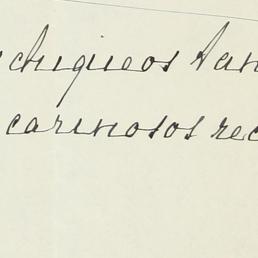 chiqueos tan
carinosos rec